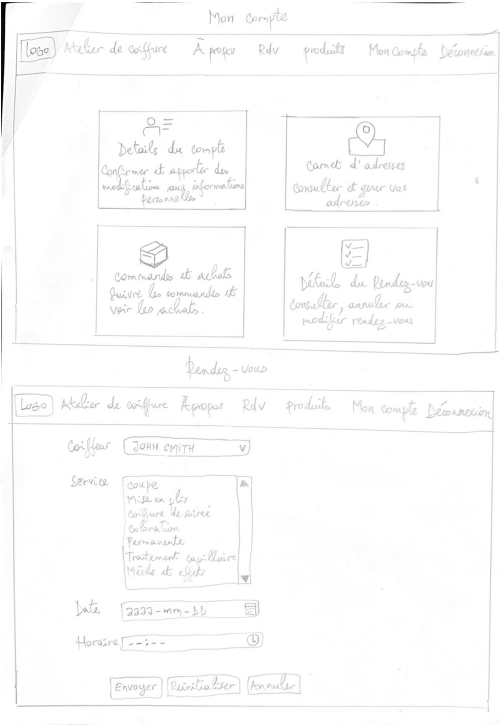 Mon compte
Logo Atelier de coiffure À propos Rdv produits Mon compte Déconnexion
Details du compte
Confirmer et apporter des
modifications aux informations
personnelles
carnet d'adresses
consulter et gerer vos
adresses.
commandes et achats
Suivre les commandes et
voir les achats.
Détails du Rendez-vous
consulter, annuler ou
modifier rendez-vous
Rendez-vous
Logo Atelier de coiffure Apropos Rdv Produits Mon compte Déconnexion
Coiffeur JOHN SMITH
Service
coupe
Mise en plis
coiffure de soireé
coloration
Permanente
Traitement capillaire
Mèche et effets
Date aaaa-mm-DD
Horaire --:--
Envoyer Reinitialiser Annuler